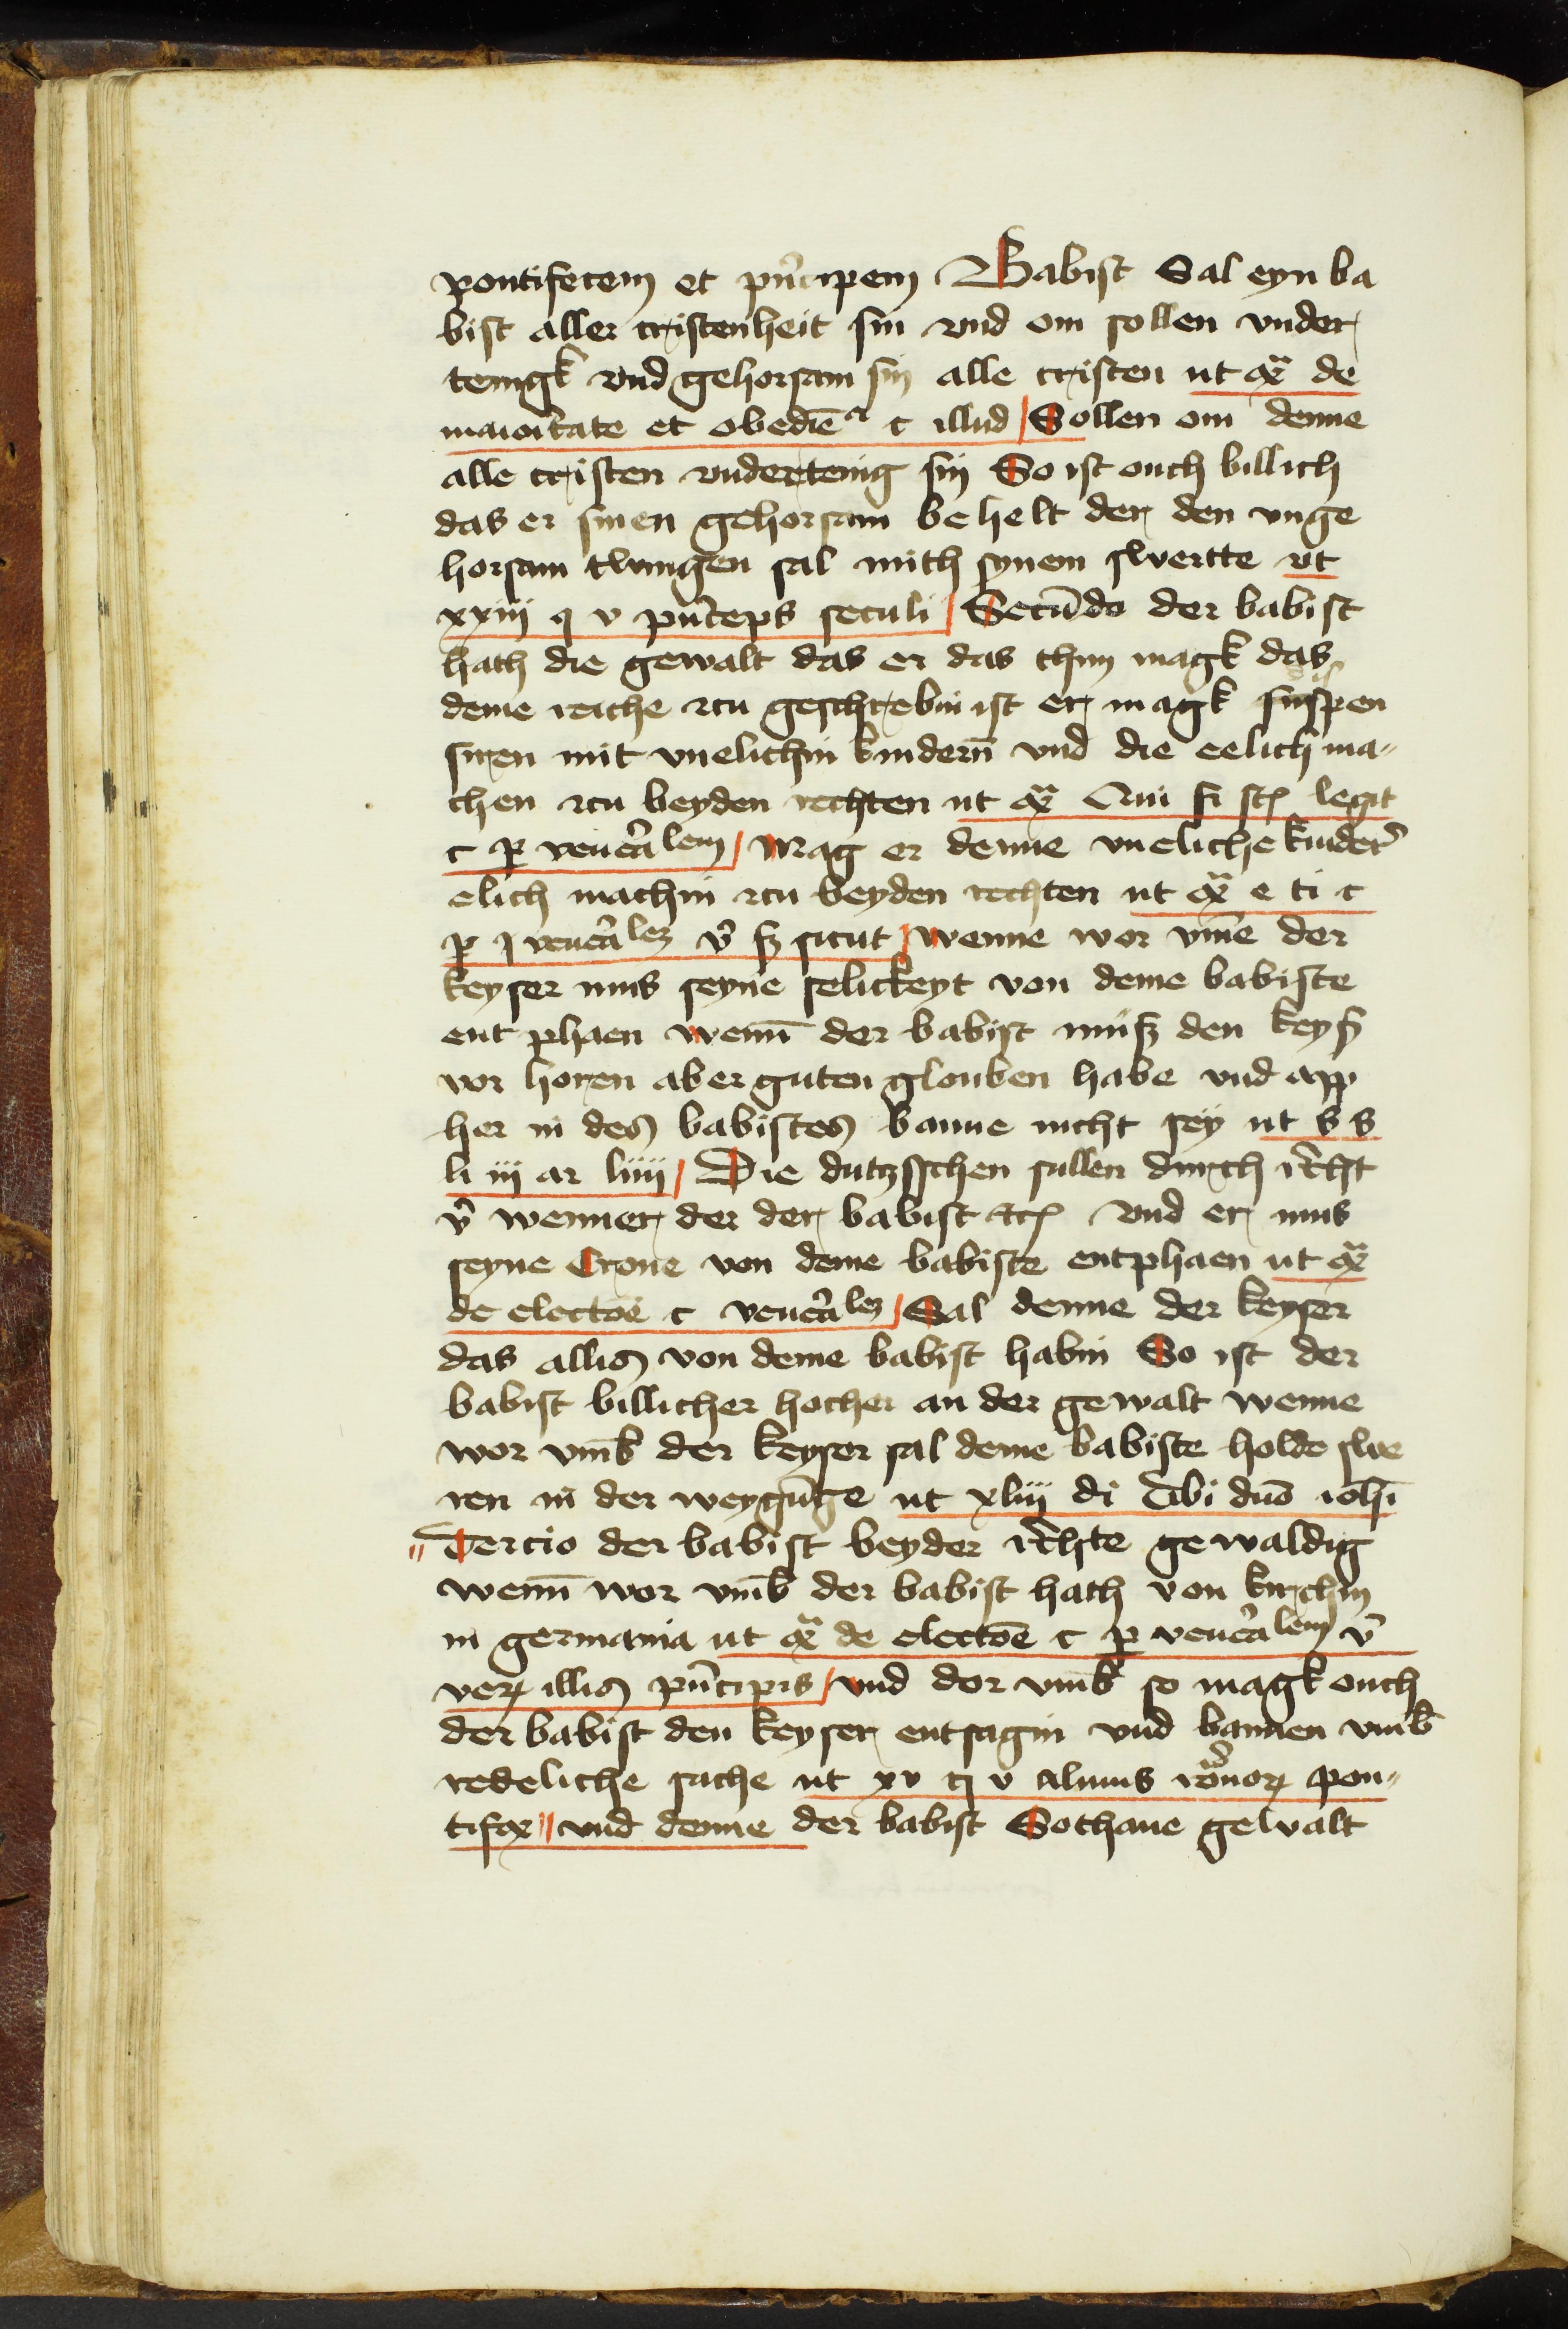 pontificem et pn̄cipem Babist Sal eyn ba
bist aller cristenheit sin vnd om sollen vnder
tenigk vnd gehorsam sin alle cristen ut ex̄ de
maioritate et obediē c illud Sollen om denne
alle cristen vndertenig sin So ist ouch billich
das er sinen gehorsam behelt der den vnge
horsam twingen sal mith synem swertte vt
xxiij q v pn̄ceps seculi Secūdo der babist
hath die gewalt das er das thun magk das
deme reiche zcu geschrebin ist er magk suspen
siren mit vnelichin kindern̄ vnd die eelich ma-
chen zcu beyden rechten ut ex̄ Qui fi st legit
c p venēalem Mag er denne vneliche kinder
elich machin zcu beyden rechten ut ex̄ e ti c
p venēalez v̄ sz sicut wenne wor vm̄e der
keyser mus seyne selickeyt von deme babiste
ent phaen wenn̄ der babist muſz den keyſ
vor horen ab er guten glouben habe vnd app
her in des babistes banne nicht sey ut s s
li iij ar liiij Die dutzsschen sullen durch r̄cht
v̄ wenner der der babist etc̄ Vnd er mus
seyne Crone von deme babiste entphaen ut ex̄
de electōe c venēalez Sal denne der keyser
das allis von deme babist habin So ist der
babist billicher hocher an der gewalt wenne
wor vmb̄ der keyser sal deme babiste holde swe
ren in der weygūge ut xliij di Tibi dn̄o ioh̄i
Tercio der babist beyder r̄chte gewaldig
wenn̄ wor vmb̄ der babist hath von kirchin
in germania ut ex̄ de electōe c p venēalem v̄
ver illis pn̄cipis vnd dor vmb̄ so magk ouch
der babist den keyser entsagin vnd bannen vmb̄
redeliche sache ut xv q v alius rōnor pon-
tifex vnd denne der babist Sothane gewalt